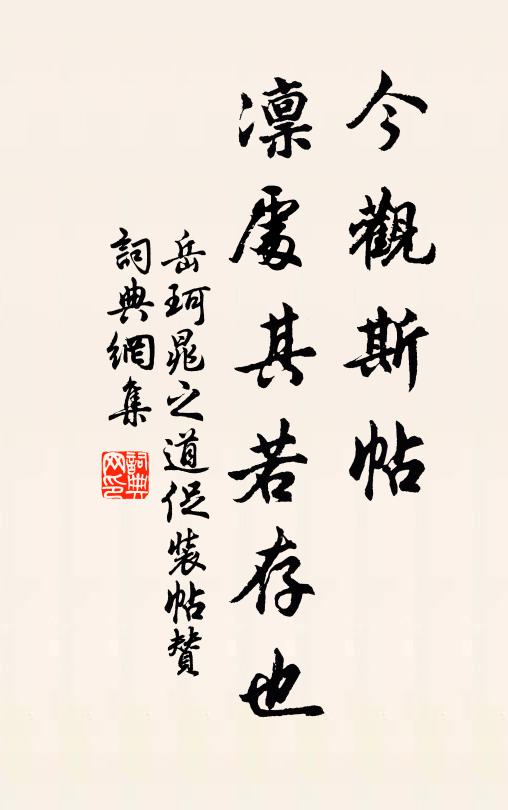 今觀斯帖
凜處其若存也
岳珂晁之道促裝帖贊
詞典網集
詞典
网印